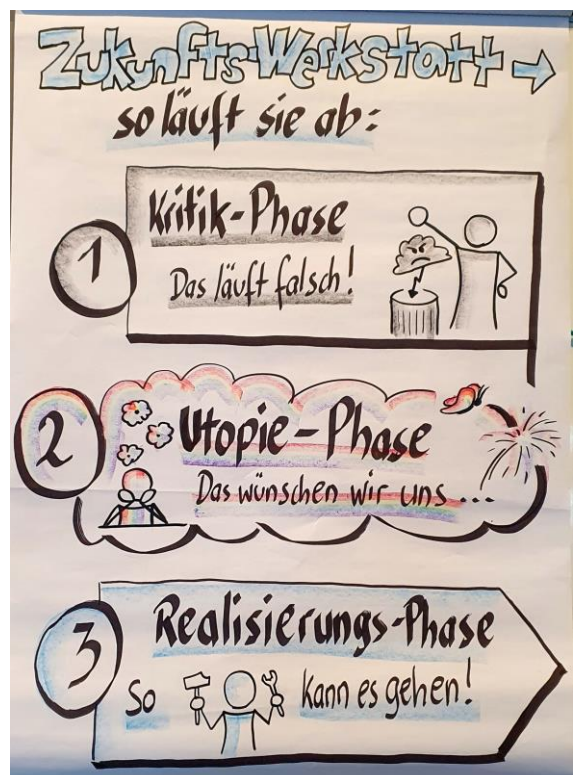 ZukunftsWerkstatt →
so läuft sie ab:
1
Kritik-Phase
Das läuft falsch!
2
Utopie-Phase
Das wünschen wir uns...
3
Realisierungs-Phase
So kann es gehen!